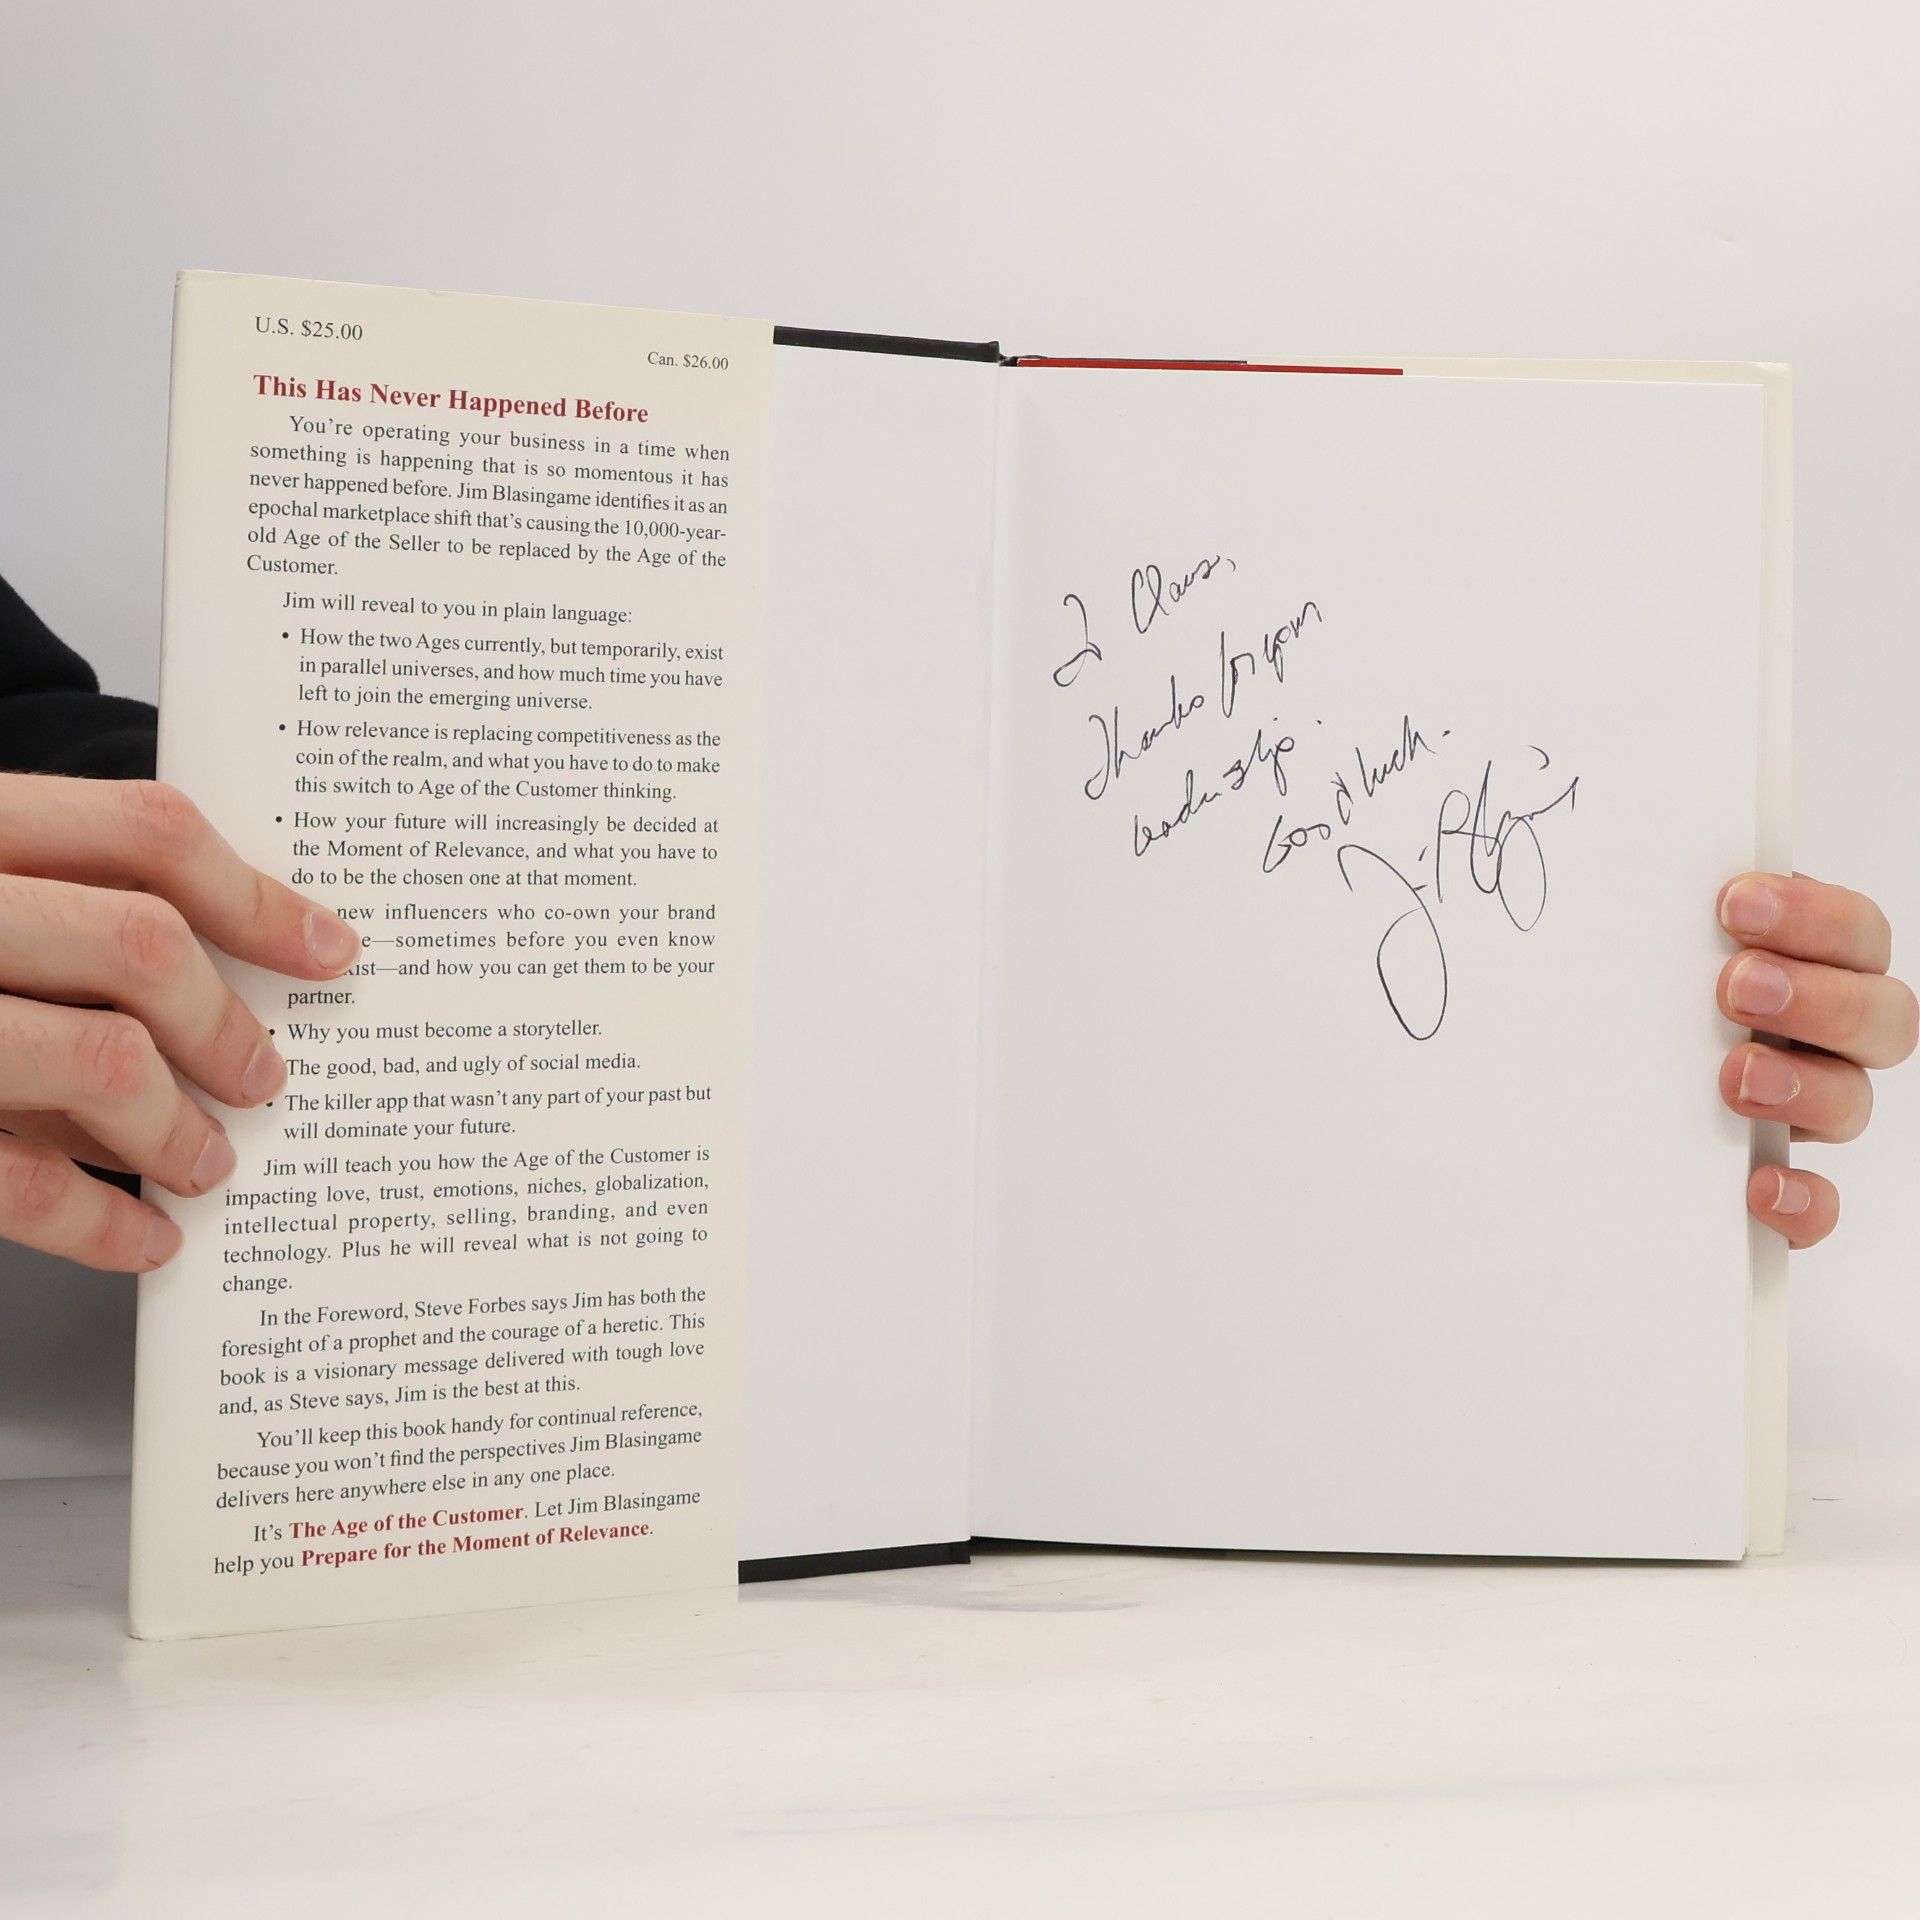 U.S. $25.00
Can. $26.00
This Has Never Happened Before
You're operating your business in a time when
something is happening that is so momentous it has
never happened before. Jim Blasingame identifies it as an
epochal marketplace shift that's causing the 10,000-year-
old Age of the Seller to be replaced by the Age of the
Customer.
Jim will reveal to you in plain language:
• How the two Ages currently, but temporarily, exist
in parallel universes, and how much time you have
left to join the emerging universe.
• How relevance is replacing competitiveness as the
coin of the realm, and what you have to do to make
this switch to Age of the Customer thinking.
• How your future will increasingly be decided at
the Moment of Relevance, and what you have to
do to be the chosen one at that moment.
new influencers who co-own your brand
e—sometimes before you even know
xist—and how you can get them to be your
partner.
• Why you must become a storyteller.
The good, bad, and ugly of social media.
• The killer app that wasn't any part of your past but
will dominate your future.
Jim will teach you how the Age of the Customer is
impacting love, trust, emotions, niches, globalization,
intellectual property, selling, branding, and even
technology. Plus he will reveal what is not going to
change.
In the Foreword, Steve Forbes says Jim has both the
foresight of a prophet and the courage of a heretic. This
book is a visionary message delivered with tough love
and, as Steve says, Jim is the best at this.
You'll keep this book handy for continual reference,
because you won't find the perspectives Jim Blasingame
delivers here anywhere else in any one place.
It's The Age of the Customer. Let Jim Blasingame
help you Prepare for the Moment of Relevance.
To Claus,
Thanks for your
leadership.
Good luck.
Jim